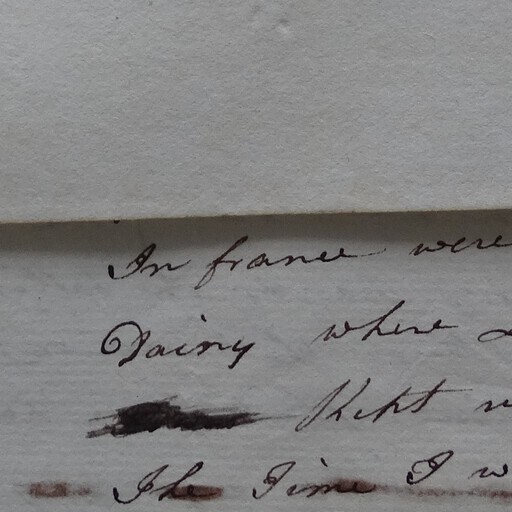 In france were
Dainy where
Kept
The Time I w